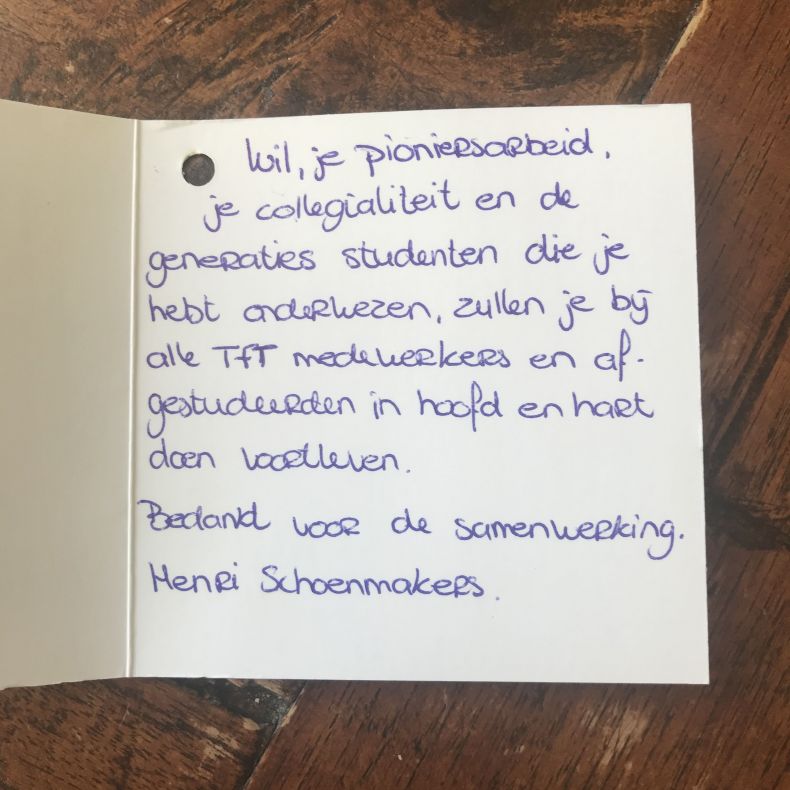 Wil, je pioniersarbeid,
je collegialiteit en de
generaties studenten die je
hebt onderwezen, zullen je bij
alle TfT medewerkers en af-
gestudeerden in hoofd en hart
doen voortleven.
Bedankt voor de samenwerking.
Henri Schoenmakers.